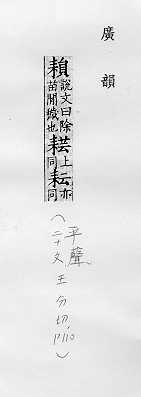 廣韻
䎣說文曰除苗閒穢也𦔐上同耘亦同
（平聲
二十文 王分切，P110）